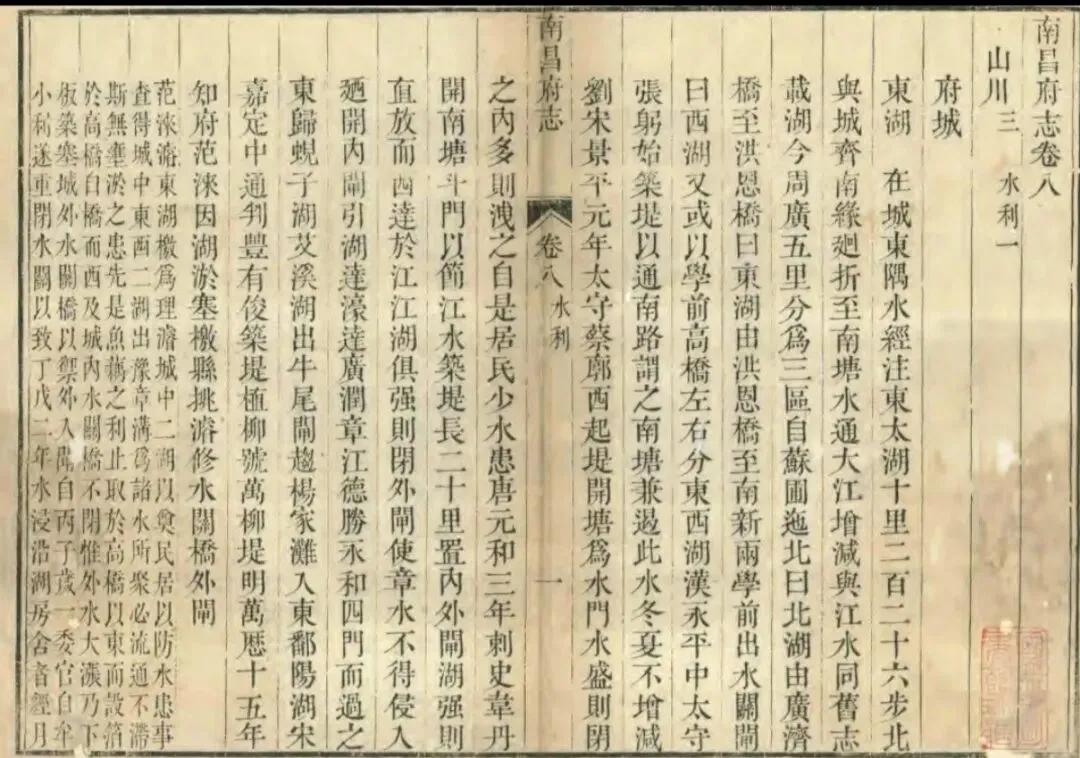 南昌府志卷八
山川三 水利一
府城
東湖 在城東隅水經注東太湖十里二百二十六步北
與城齊南緣廻折至南塘水通大江增減與江水同舊志
載湖今周廣五里分爲三區自蘇圃迤北曰北湖由廣濟
橋至洪恩橋曰東湖由洪恩橋至南新兩學前出水關閘
曰西湖又或以學前高橋左右分東西湖漢永平中太守
張躬始築堤以通南路謂之南塘兼遏此水冬夏不增減
劉宋景平元年太守蔡廓西起堤開塘爲水門水盛則閉
南昌府志 卷八 水利 一
之內多則洩之自是居民少水患唐元和三年刺史韋丹
開南塘斗門以節江水築堤長二十里置內外閘湖强則
直放而西達於江江湖俱强則閉外閘使章水不得侵入
廼開內閘引湖達濠達廣潤章江德勝永和四門而過之
東歸蜆子湖艾溪湖出牛尾閘趨楊家灘入東鄱陽湖宋
嘉定中通判豐有俊築堤植柳號萬柳堤明萬厯十五年
知府范淶因湖淤塞檄縣挑濬修水關橋外閘
范淶濬東湖檄爲理濬城中二湖以奠民居以防水患事
查得城中東西二湖出豫章溝爲諸水所聚必流通不滯
斯無壅淤之患先是魚藕之利止取於高橋以東而設箔
於高橋自橋而西及城內水關橋不閉惟外水大漲乃下
板築塞城外水關橋以禦外入閘自丙子歲一委官自牟
小利遂重閉水關以致丁戊二年水浸沿湖房舍者經月